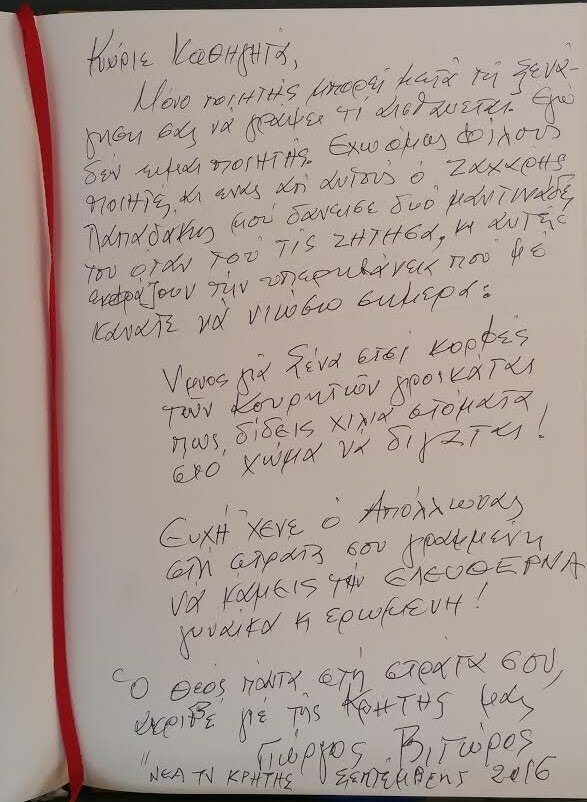 Κύριε Καθηγητά,
Μόνο ποιητής μπορεί μετά τη ξενά-
γηση σας νά γράψει τί αισθάνεται. Εγώ
δέν είμαι ποιητής. Εχω όμως φίλους
ποιητές κι ενας απ αυτούς ο Ζαχάρης
Παπαδάκης μού δάνεισε δυό μαντινάδες
του οταν τού τίς ζήτησα, κι αυτές
εκφράζουν τήν υπερηφάνεια πού μέ
κάνατε νά νιώσω σημερα:
Υμνος γιά Σένα στσί κορφές
τών Κουρητών γροικάται
πως δίδεις χίλια στόματα
στο χώμα νά διγάται!
Ευχή 'χενε ο Απόλλωνας
στή στράτα σου γραμμένη
νά κάμεις τήν ΕΛΕΥΘΕΡΝΑ
γυναίκα κ ερωμένη!
Ο Θεός πάντα στή στράτα σου,
ακριβέ γιέ τής Κρήτης μας
Γιώργος Βιτώρος
"ΝΕΑ TV ΚΡΗΤΗΣ Σεπτέμβρης 2016